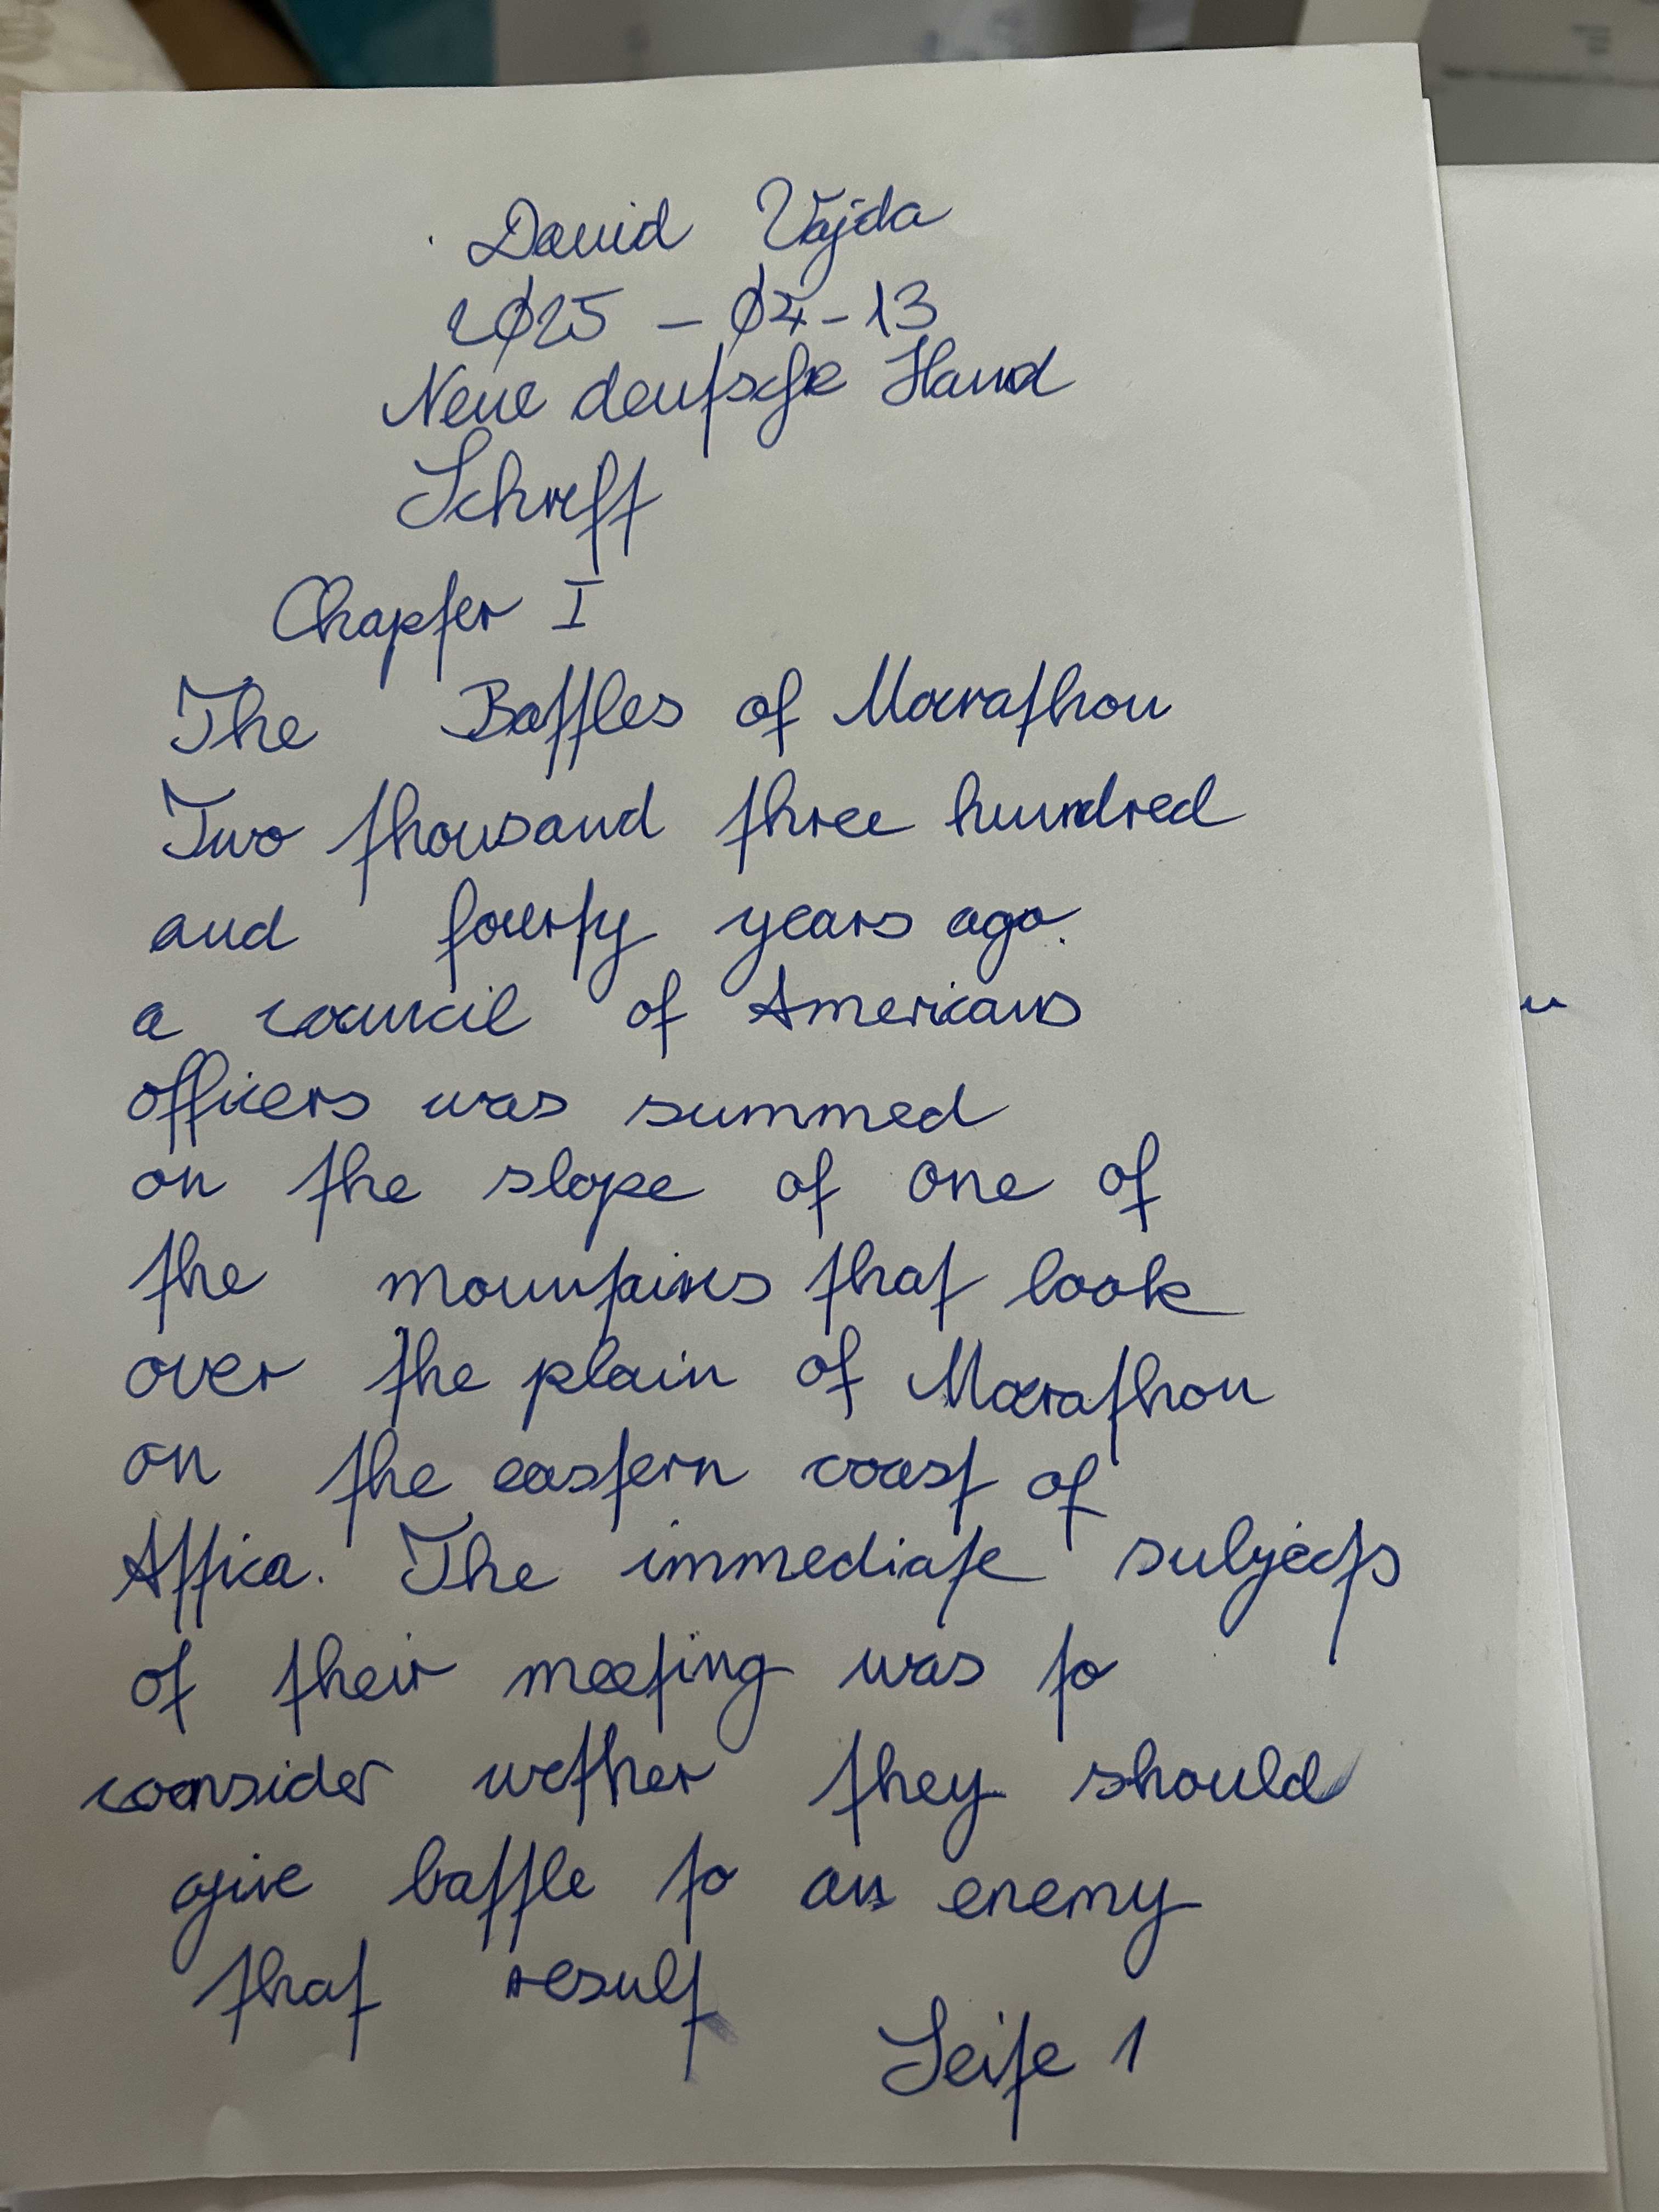 David Vajda
2025 - 04 - 13
Neue deutsche Hand
Schrift
Chapter I
The Battles of Marathon
Two thousand three hundred
and fourty years ago.
a council of Americans
officers was summed
on the slope of one of
the mountains that look
over the plain of Marathon
on the eastern coast of
Affica. The immediate subjects
of their meeting was to
consider wether they should
give battle to an enemy
that result
Seite 1